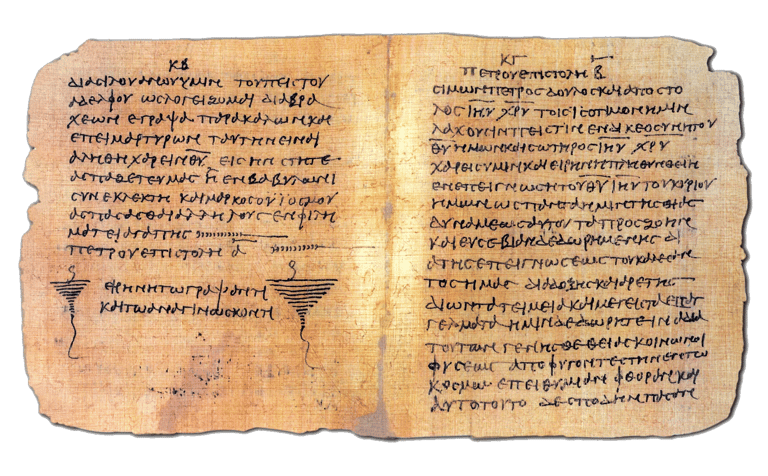 ΚΒ
ΔΙΑ ϹΙΛΟΥΑΝΟΥ ΥΜΙΝ ΤΟΥ ΠΕΙϹΤΟΥ
ΑΔΕΛΦΟΥ ΩϹ ΛΟΓΕΙΖΟΜΑΙ ΔΙΑ ΒΡΑ
ΧΕΩΝ ΕΓΡΑΨΑ ΠΑΡΑΚΑΛΩΝ ΚΑΙ
ΕΠΕΙΜΑΡΤΥΡΩΝ ΤΑΥΤΗΝ ΕΙΝΑΙ
ΑΛΗΘΗ ΧΑΡΕΙΝ ΘΥ ΕΙϹ ΗΝ ϹΤΗΤΕ
ΑϹΠΑΖΕΤΕ ΥΜΑϹ Η ΕΝ ΒΑΒΥΛΩΝΙ
ϹΥΝΕΚΛΕΚΤΗ ΚΑΙ ΜΑΡΚΟϹ Ο ΥΙΟϹ ΜΟΥ
ΑϹΠΑϹΑϹΘΑΙ ΑΛΛΗΛΟΥϹ ΕΝ ΦΙΛΗ
ΜΑΤΕΙ ΑΓΑΠΗϹ
ΠΕΤΡΟΥ ΕΠΙϹΤΟΛΗ Α
ΕΙΡΗΝΗ ΤΩ ΓΡΑΨΑΝΤΙ
ΚΑΙ ΤΩ ΑΝΑΓΙΝΩϹΚΟΝΤΙ
ΚΓ
ΠΕΤΡΟΥ ΕΠΙϹΤΟΛΗ Β
ϹΙΜΩΝ ΠΕΤΡΟϹ ΔΟΥΛΟϹ ΚΑΙ ΑΠΟϹΤΟ
ΛΟϹ ΙΗΥ ΧΡΥ ΤΟΙϹ ΙϹΟΤΙΜΟΝ ΗΜΙΝ
ΛΑΧΟΥϹΙΝ ΠΙϹΤΙΝ ΕΝ ΔΙΚΕΟϹΥΝΗ ΤΟΥ
ΘΥ ΗΜΩΝ ΚΑΙ ϹΩΤΗΡΟϹ ΙΗΥ ΧΡΥ
ΧΑΡΕΙϹ ΥΜΙΝ ΚΑΙ ΕΙΡΗΝΗ ΠΛΗΘΥΝΘΕΙΗ
ΕΝ ΕΠΕΙΓΝΩϹΗ ΤΟΥ ΘΥ ΙΗΥ ΤΟΥ ΚΥΡΙΟΥ
ΗΜΩΝ ΩϹ ΠΑΝΤΑ ΗΜΙΝ ΤΗϹ ΘΙΑϹ
ΔΥΝΑΜΕΩϹ ΑΥΤΟΥ ΤΑ ΠΡΟϹ ΖΩΗΝ
ΚΑΙ ΕΥϹΕΒΙΑΝ ΔΕΔΩΡΗΜΕΝΗϹ ΔΙ
Α ΤΗϹ ΕΠΕΙΓΝΩϹΕΩϹ ΤΟΥ ΚΑΛΕϹΑΝ
ΤΟϹ ΗΜΑϹ ΔΙΑ ΔΟΞΗϹ ΚΑΙ ΑΡΕΤΗϹ
ΔΙ ΩΝ ΤΑ ΤΕΙΜΕΙΑ ΚΑΙ ΜΕΓΕΙϹΤΑ ΕΠΑΓ
ΓΕΛΜΑΤΑ ΗΜΙΝ ΔΕΔΩΡΗΤΕ ΙΝΑ ΔΙΑ
ΤΟΥΤΩΝ ΓΕΝΗϹΘΕ ΘΕΙΑϹ ΚΟΙΝΩΝΟΙ
ΦΥϹΕΩϹ ΑΠΟΦΥΓΟΝΤΕϹ ΤΗΝ ΕΝ ΤΩ
ΚΟϹΜΩ ΕΠΕΙΘΥΜΙΑΝ ΦΘΟΡΑΝ ΚΑΙ
ΑΥΤΟ ΤΟΥΤΟ ΔΕ ϹΠΟΔΗΝ ΠΑϹΑΝ